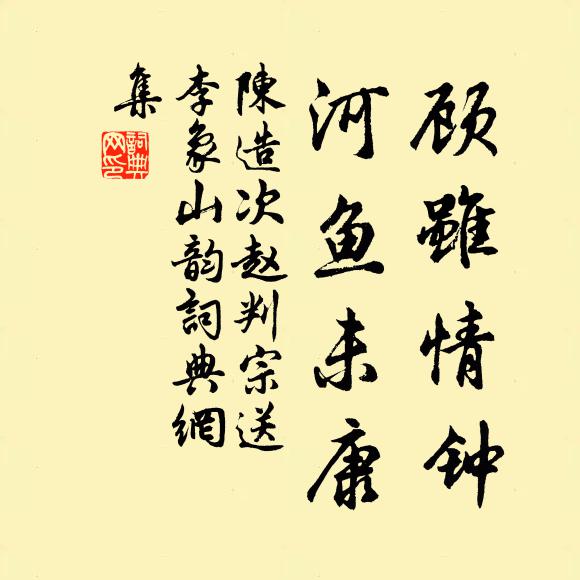 顾雖情钟
河鱼未康
陳造次赵判宗送
李象山韵詞典網
集
詞典
网印